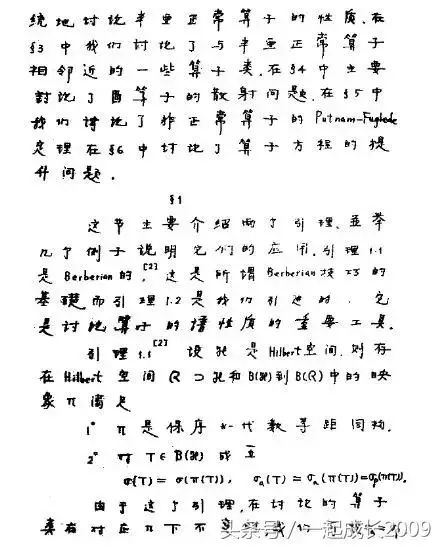 统地讨论半亚正常算子的性质.在
§3中我们讨论了与半亚正常算子
相邻近的一些算子类.在§4中主要
讨论了酉算子的散射问题.在§5中
我们讨论了非正常算子的Putnam-Fuglede
定理在§6中讨论了算子方程的提
升问题.
§1
这节主要介绍两个引理、并举
几个例子说明它们的应用.引理1.1
是Berberian的,[2]这是所谓Berberian技巧的
基礎而引理1.2是我们引进的.它
是讨论算子的谱性质的重要工具.
引理1.1[2] 设ℋ是Hilbert空间.则存
在Hilbert空间 ℛ⊃ℋ和B(ℋ)到B(ℛ)中的映
象π满足
1° π是保序*-代数等距同构.
2° 对T∈B(ℋ)成立
σ(T)=σ(π(T)), σa(T)=σa(π(T))=σp(π(T)).
由于这个引理.在讨论的算子
类在对应π下不
头条号/一起成长2009